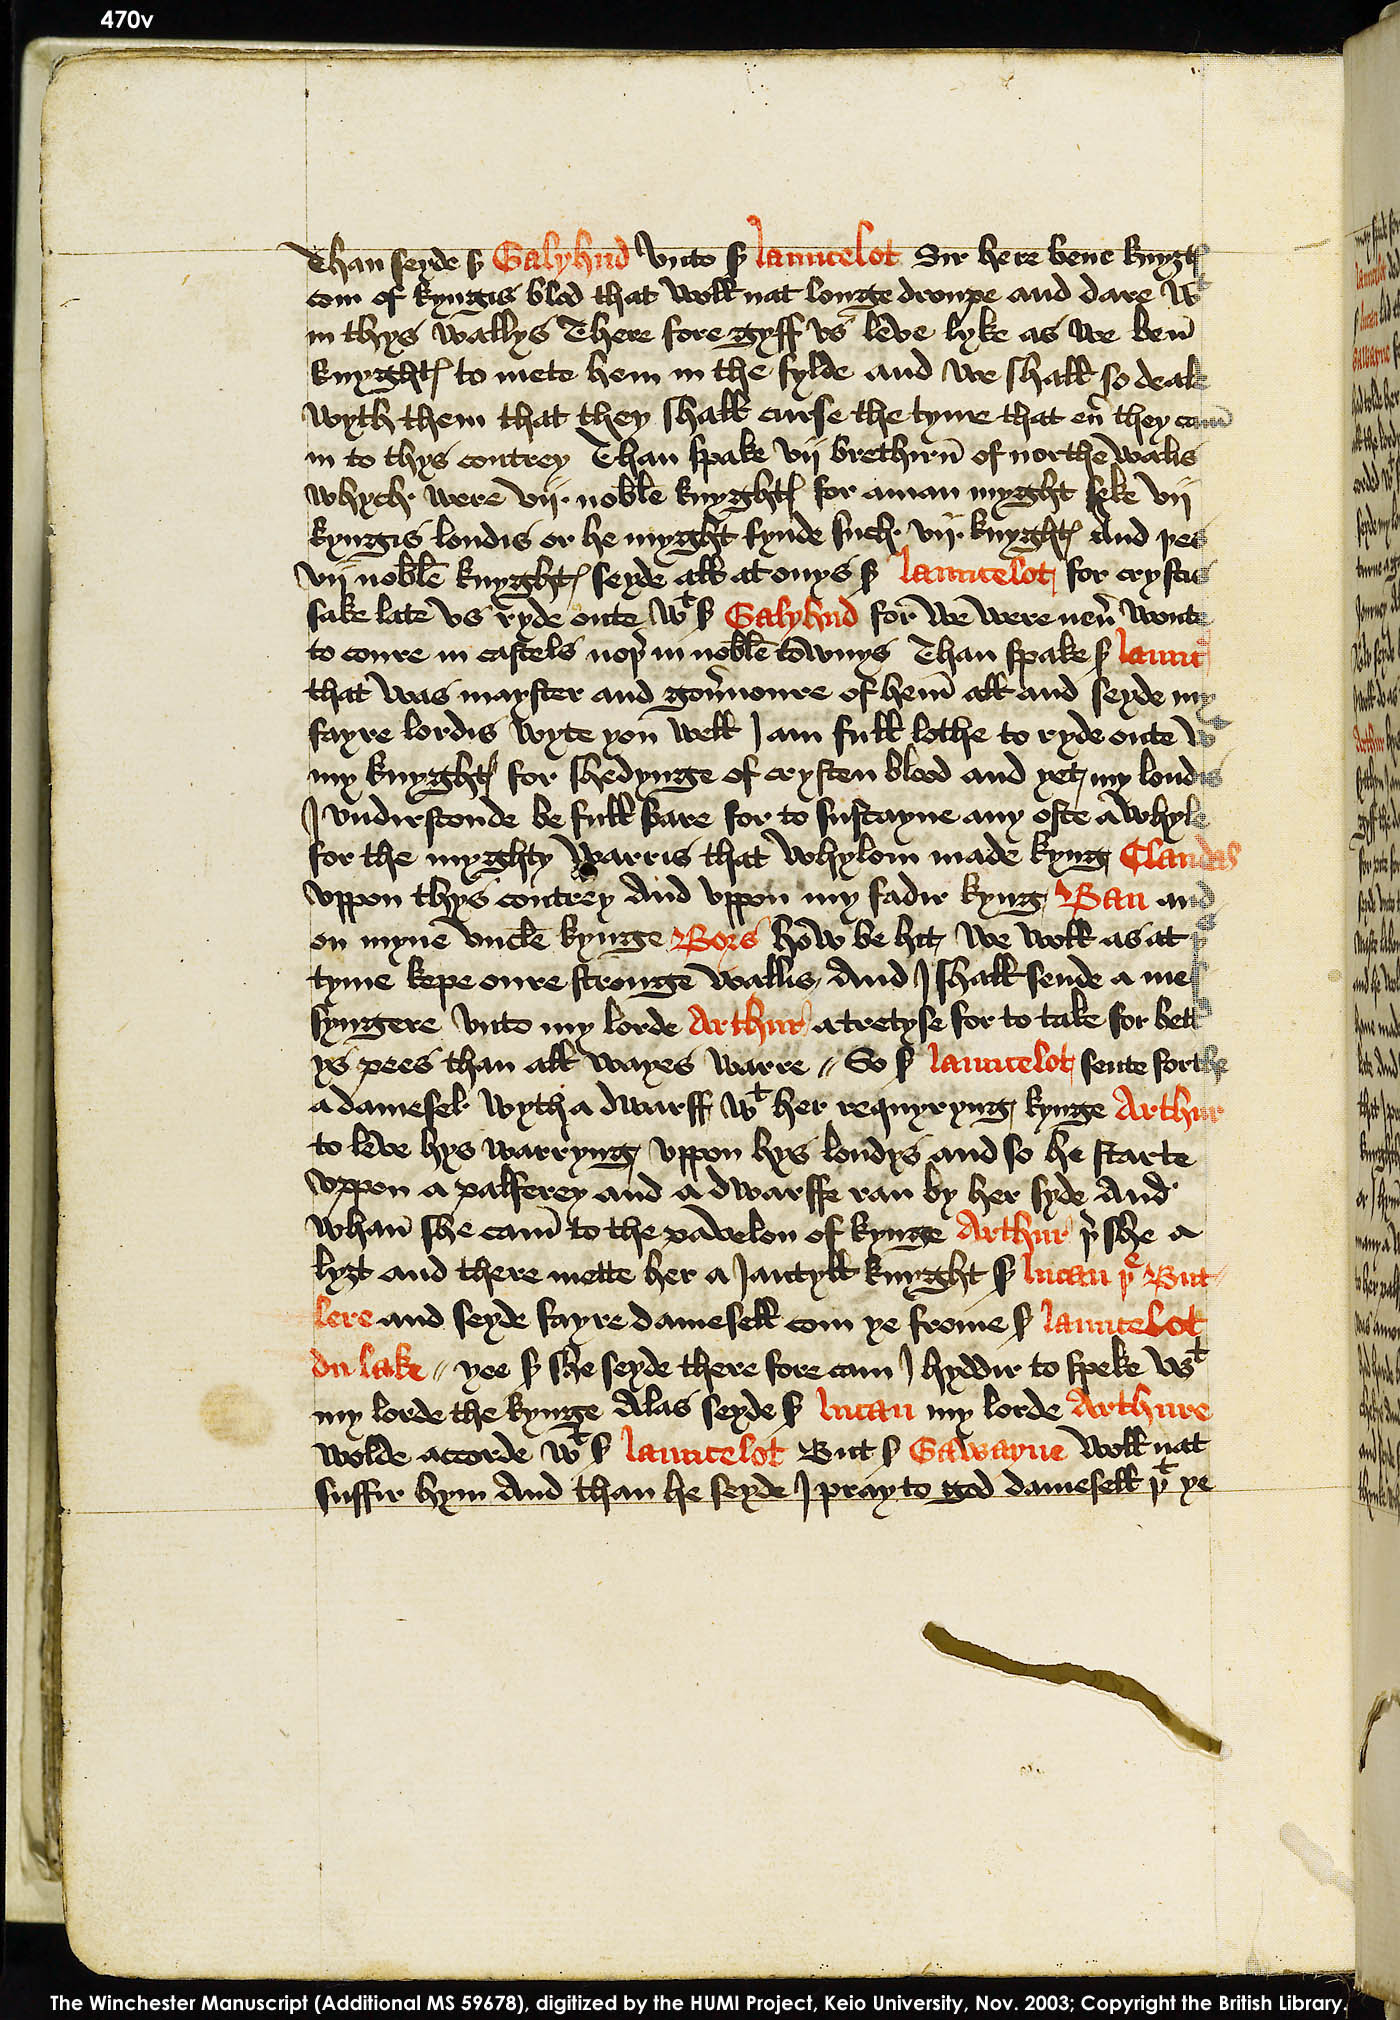 470v
Than seyde sr Galyhud Vnto sr launcelot Sir here bene knyȝtes
com of kyngis blod that woll nat longe droupe and dare wt
in thys wallys There fore gyff vs leve lyke as we ben
knyghtes to mete hem in the fylde and we shall so deale
wyth them that they shall curse the tyme that eur they cam
in to thys contrey Than spake vij brethirn of northe walis
whych were vij. noble knyghtes for a man myght seke vij
kyngis londis or he myght fynde such vij. knyghtes And þes
vij noble knyghtes seyde all at onys sr launcelot for crystis
sake late vs ryde oute wt sr Galyhud for we were neur wonte
to coure in castels noþer in noble townys Than spake sr launc
that was mayster and gouernoure of hem all and seyde my
fayre lordis wyte you well I am full lothe to ryde oute wt
my knyghtes for shedynge of crysten blood and yet my londis
I vndirstonde be full bare for to sustayne any oste a whyle
for the myghty warris that whylom made kyng Claudas
vppon thys contrey And vppon my fadir kyng Ban and
on myne vncle kynge Bors how be hit we woll as at þs
tyme kepe oure stronge wallis And I shall sende a mes
syngere Vnto my lorde Arthur a tretyse for to take for bettr
ys pees than all wayes warre // So sr launcelot sente forthe
a damesel wyth a dwarff wt her requyryng kynge Arthur
to leve hys warryng vppon hys londys and so he starte
vppon a palferey and a dwarffe ran by her syde And
whan she cam to the pavelon of kynge Arthur þer she a
lyȝt and there mette her a Jantyll knyght sr lucan þe But
lere and seyde fayre damesell com ye frome sr launcelot
du lake // yee sr she seyde there fore cam I hyddir to speke wt
my lorde the kynge Alas seyde sr lucan my lorde Arthure
wolde accorde wt sr launcelot But sr Gawayne woll nat
suffir hym And than he seyde I pray to god damesell þt ye
The Winchester Manuscript (Additional MS 59678), digitized by the HUMI Project, Keio University, Nov. 2003; Copyright the British Library.